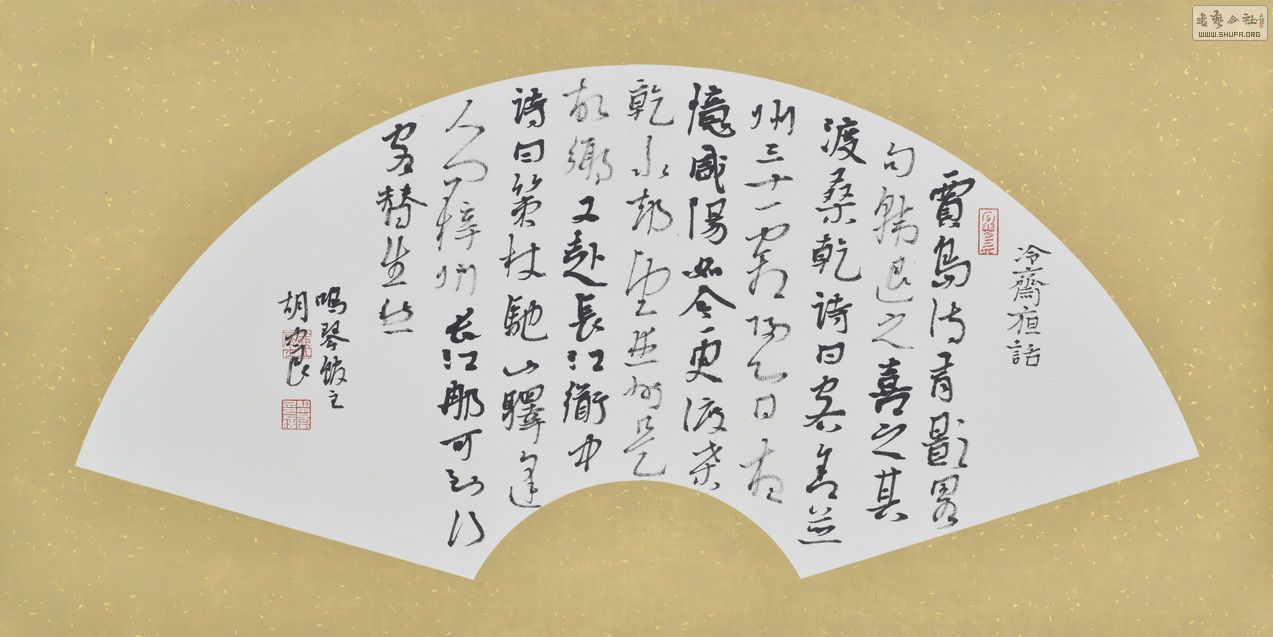 冷齋夜話
賈島詩有影畧
句韓退之喜之其
渡桑乾詩曰客舍並
州三十一霜歸心日夜
憶咸陽如今更渡桑
乾水却望並州是
故鄉又赴長江衜中
詩曰策杖馳山驛逢
人問梓州長江那可到行
客替生愁
鳴琴
胡
WWW.SHUFA.ORG